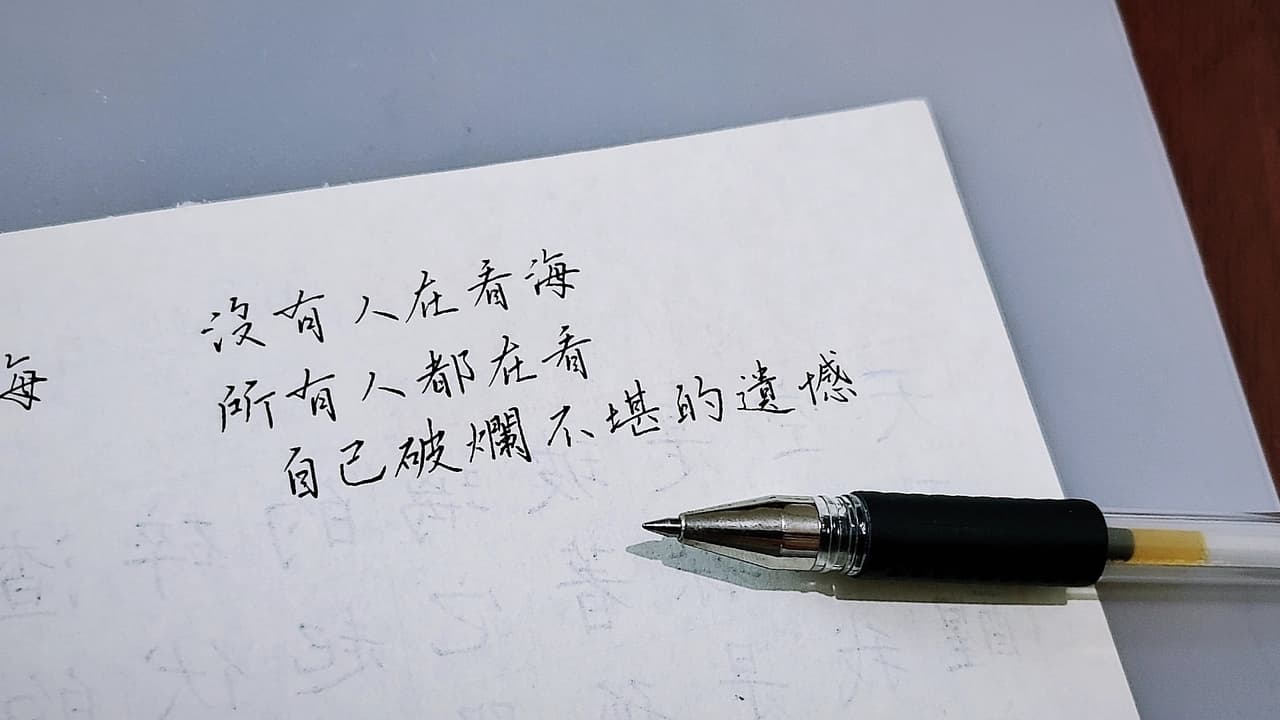 沒有人在看海
海
所有人都在看
自己破爛不堪的遺憾